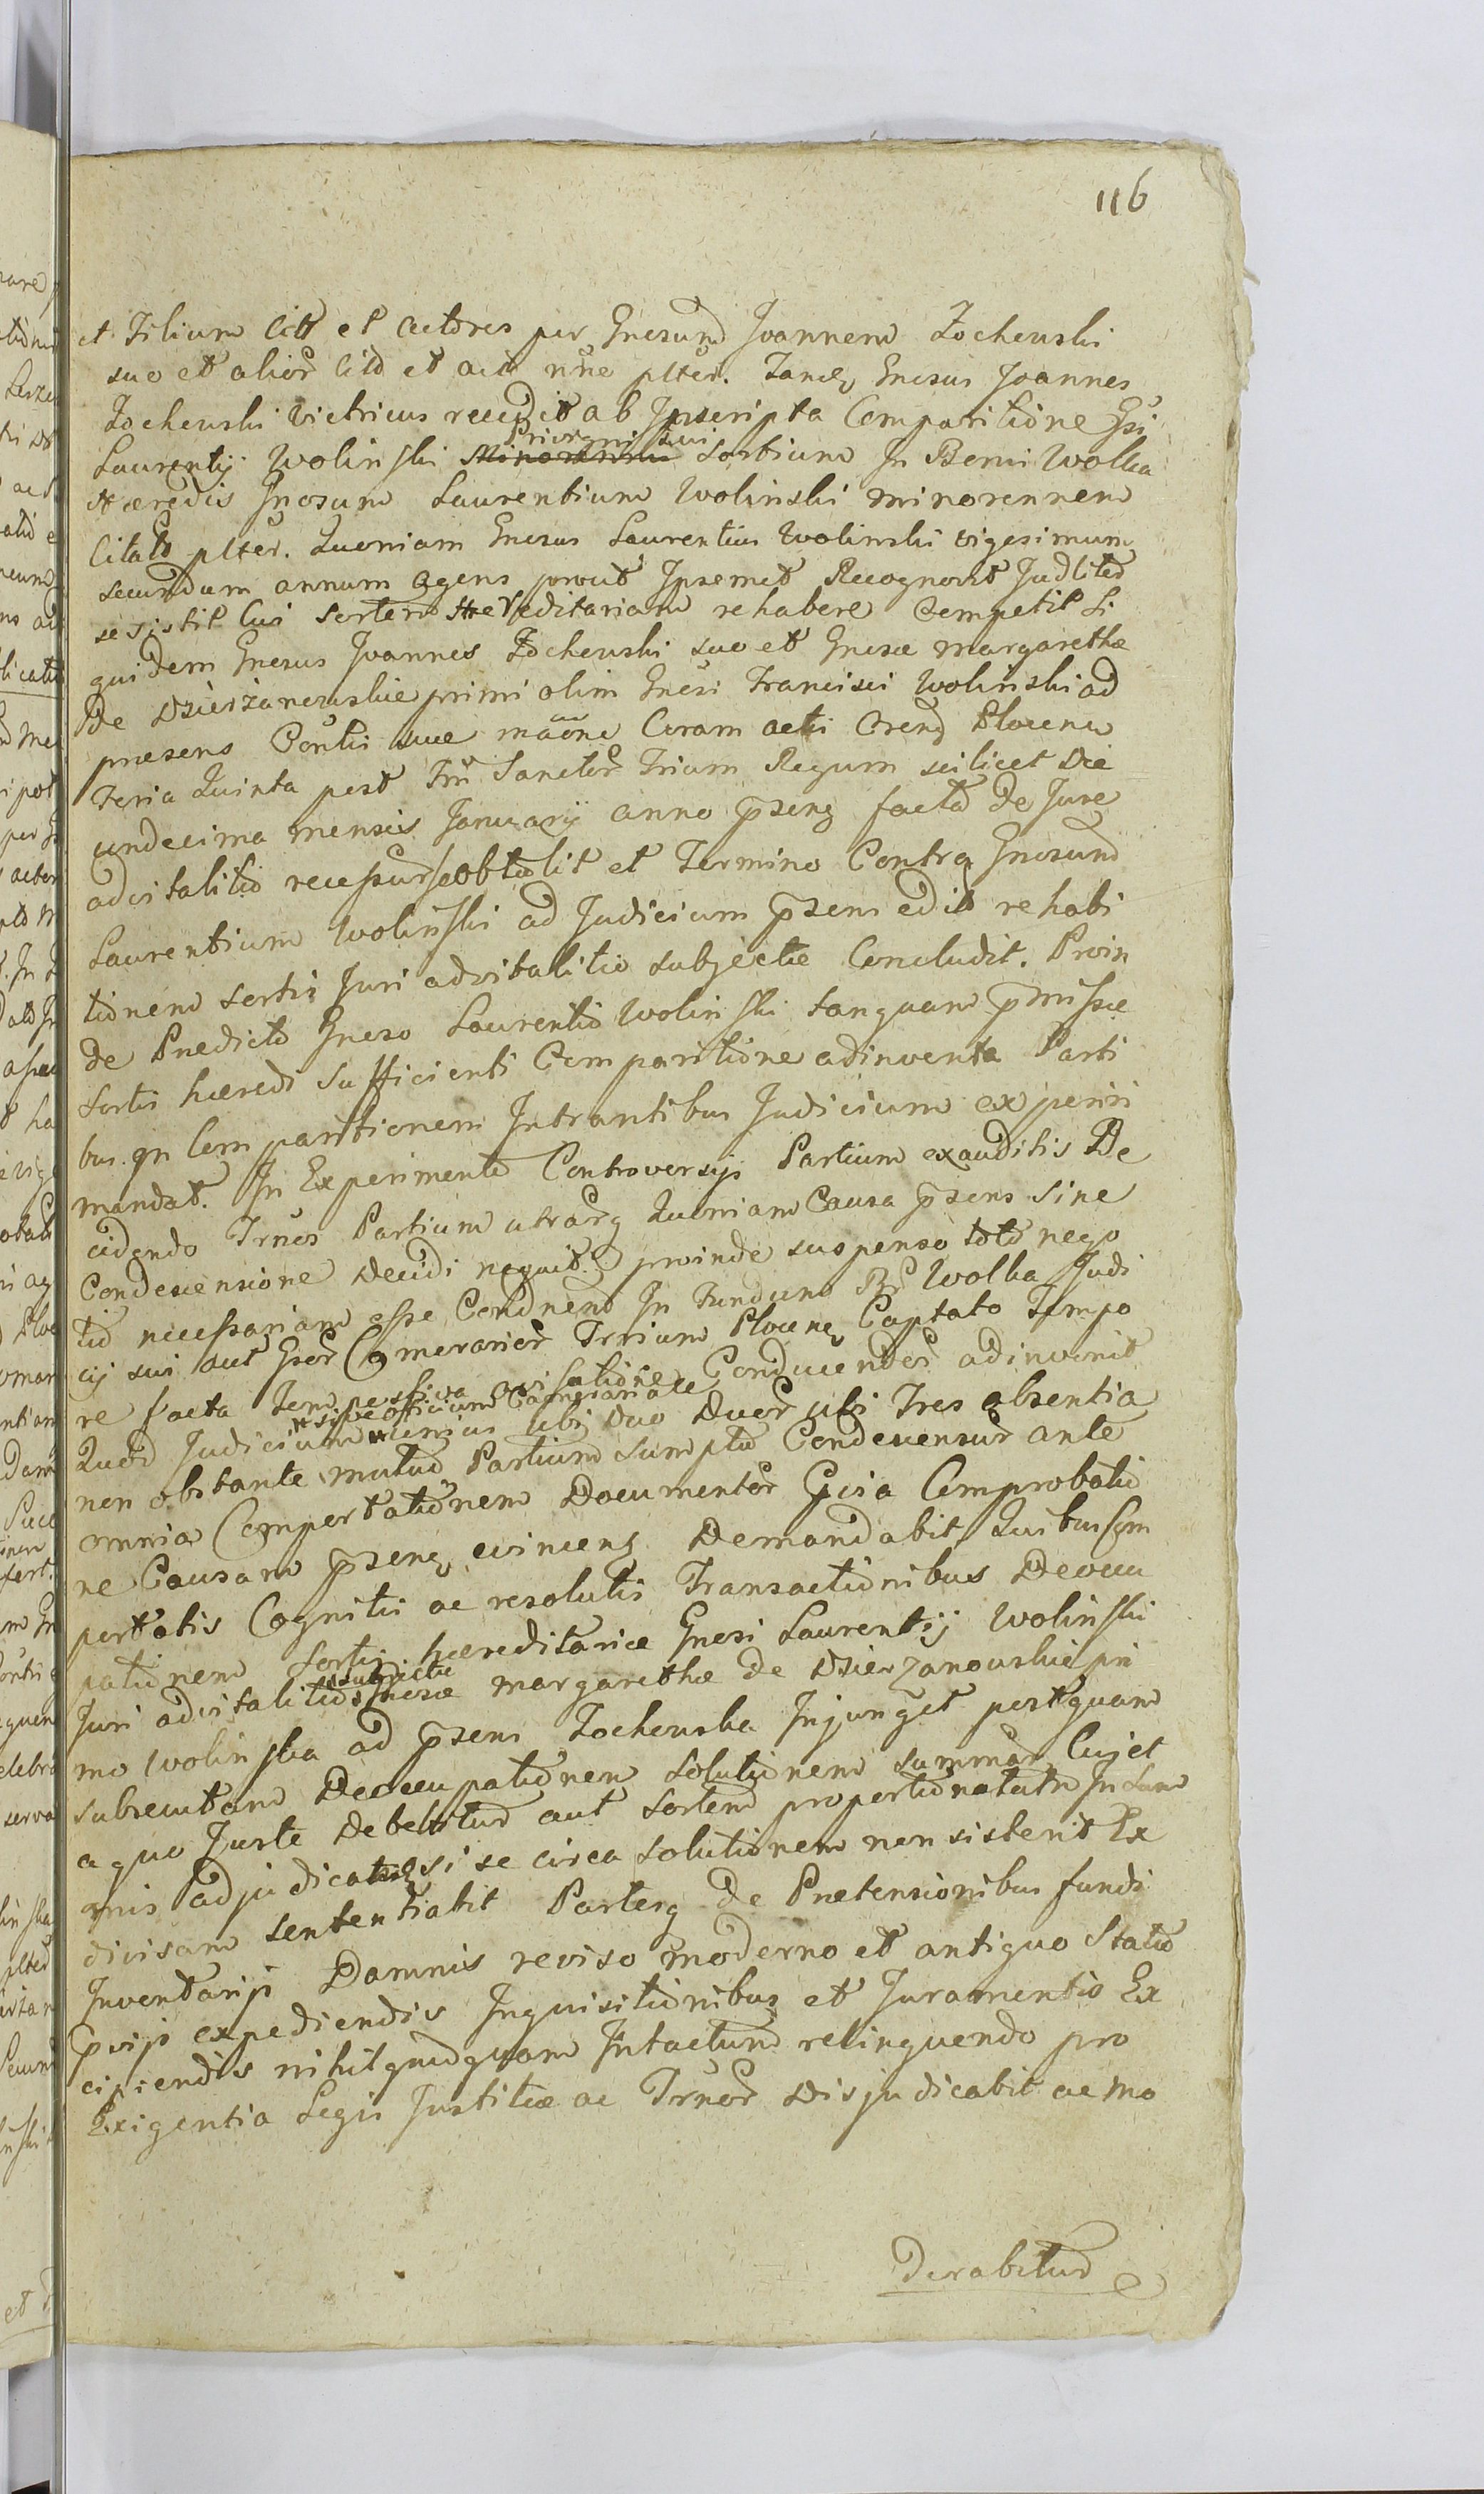 116
et Filium Citt et Actores per Gnosum Joannem Zochowski
suo et alior Citd et act nne plter. Tandq Gnosus Joannes
Zochowski Victricus recedit ab Inscripta Comparitione Gsi
Priorani sui
Laurentij Wolinski Sortium In Bonis Wolka
Hæredis Gnosum Laurentium Wolinski minorennem
Citato plter. Quoniam Gnosus Laurentius Wolinski vigesimum
secundum annum agens prout Ipsemet Recognovit Judlited
se sistit Cui Sortem Hæreditariam rehabere Competit Si
quidem Gnosus Joannes Zochowski suo et Gnosæ Margarethæ
De Dzierzanowskie primi olim Gnosi Francisci Wolinski ad
præsens Contlis suæ maône Coram actis Crend Plocens
Feria Quinta post Fm Sanctor Trium Regum scilicet Die
undecima mensis Januarij anno p̄senq facta De Jure
advitalitio recessur se obtulit et Termino Contra Gnosum
Laurentium Wolinski ad Judicium p̄sens edito rehabi
tionem sortis Juri advitalitio subjectæ Concludit. Proin
de Prædicto Gnoso Laurentio Wolinski tanquam p̄missæ
Sortis hæredi Sufficienti Comparitione adinventa Parti
bus qn Comparitionem Intrantibus Judicium experiri
mandat. In Experimento Controversijs Partium exauditis De
cidendo Trnos Partium utrarq Quoniam Causa p̄sens Sine
Condescensione Decidi nequit proinde suspenso toto nego
tio necessariam esse Condnem In Fundum Br Wolka Judi
cij sui aut Gsor Camerarior Trrium Plocens Captato Tempo
re facta tempestiva avisatione Conducendor adinvenit
sive officium Camerariale
Quod Judicium unius ubi Duo Duor ubi Tres absentia
non obstante mutuo Partium Sumptu Condescensur ante
omnia Comportationem Documentor Gsia Comprobatio
ne Causam p̄senq evincens Demandabit Quibus Com
portatis Cognitis ac resolutis Transactionibus Deoccu
pationem Sortis hæreditariæ Gnosi Laurentij Wolinski
subjectæ
Juri advitalitio Gnosæ Margarethæ De Dzierzanowskie pri
mo Wolinska ad p̄sens Zochowska Injunget postquam
subsecutam Deoccupationem Solutionem Summar Cui et
a quo Juste Debebitur aut Sortem proportionatam In Sum
mis adjudicatis si se circa Solutionem non sisterit Ex
divisam sententiabit Partesq De Prætensionibus fundi
Inventarijs Damnis reviso moderno et antiquo Statu
p̄vijs expediendis Inquisitionibus et Juramentis Ex
cipiendis nihil quidquam Intactum relinquendo pro
Exigentia Legis Justitiæ ac Trnor Disjudicabit ac mo
Derabitur